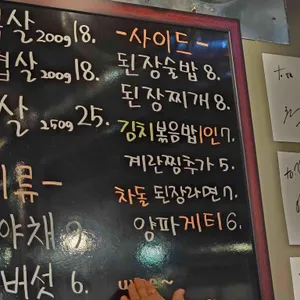 살 200g 18.
살 200g 18.
살 250g 25.
류-
야채
버섯 6.
-사이드-
된장술밥 8.
된장찌개 8.
김치볶음밥 1인 7.
계란찜추가 5.
차돌 된장라면 7.
양파게티 6.